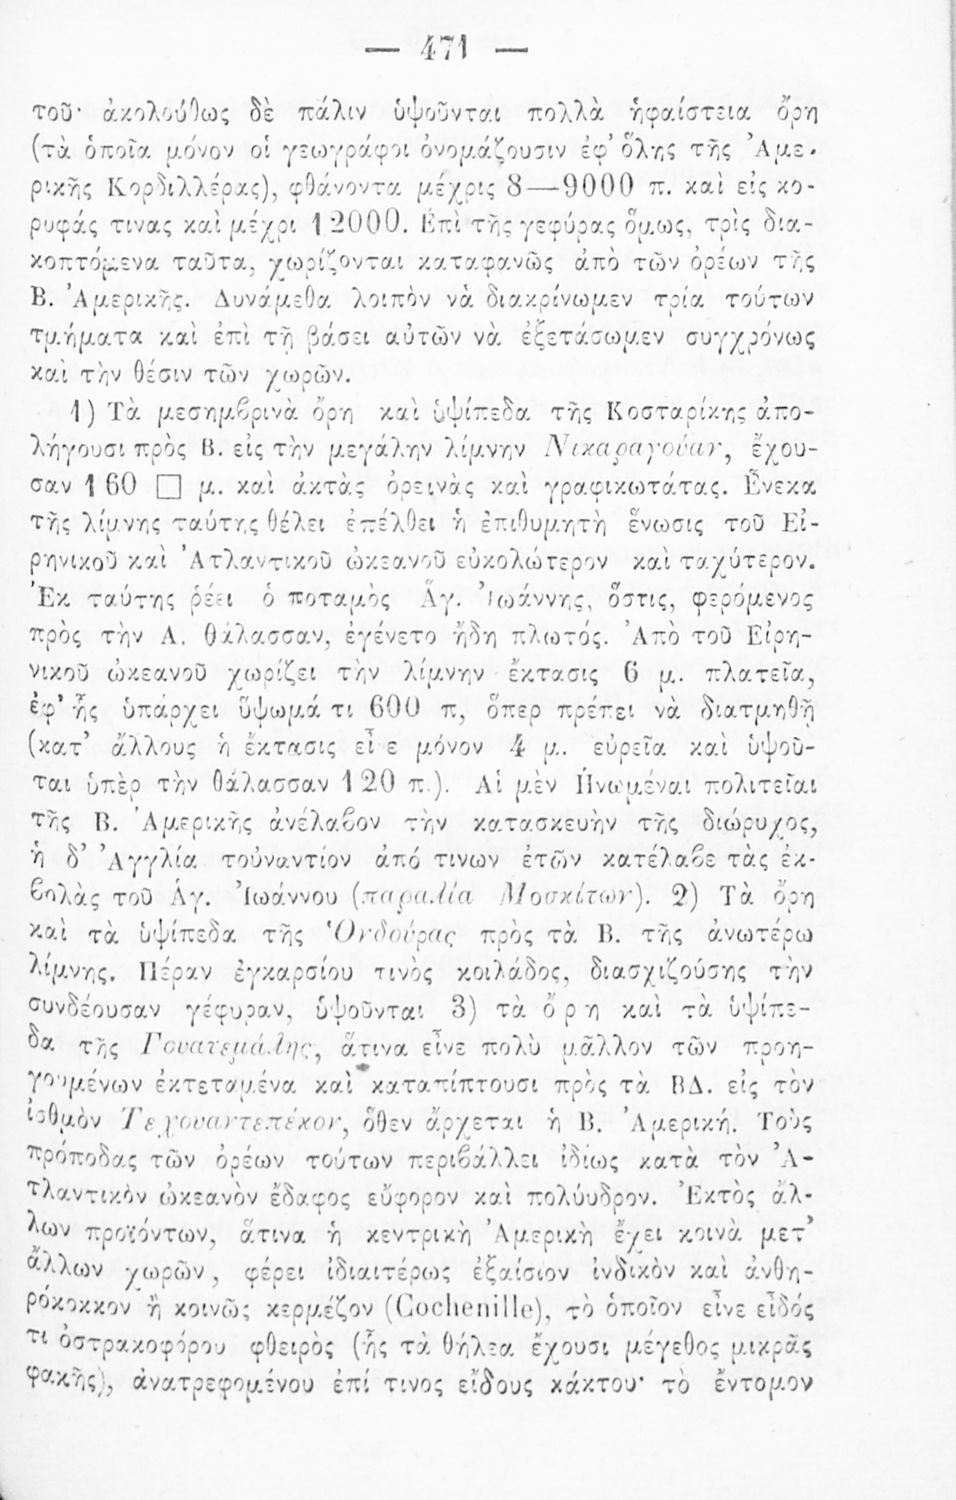 — 471 —
του· ἀκολούθως δὲ πάλιν ὑψοῦνται πολλὰ ἡφαίστεια ὄρη
(τὰ ὁποῖα μόνον οἱ γεωγράφοι ὀνομάζουσιν ἐφ' ὅλης τῆς Ἀμε-
ρικῆς Κορδιλλέρας), φθάνοντα μέχρις 8—9000 π. καὶ εἰς κο-
ρυφάς τινας καὶ μέχρι 12000. Ἐπὶ τῆς γεφύρας ὅμως, τρὶς δια-
κοπτόμενα ταῦτα, χωρίζονται καταφανῶς ἀπὸ τῶν ὀρέων τῆς
Β. Ἀμερικῆς. Δυνάμεθα λοιπὸν νὰ διακρίνωμεν τρία τούτων
τμήματα καὶ ἐπὶ τῇ βάσει αὐτῶν νὰ ἐξετάσωμεν συγχρόνως
καὶ τὴν θέσιν τῶν χωρῶν.
1) Τὰ μεσημβρινὰ ὄρη καὶ ὑψίπεδα τῆς Κοσταρίκης ἀπο-
λήγουσι πρὸς Β. εἰς τὴν μεγάλην λίμνην Νικαραγούαν, ἔχου-
σαν 160 □ μ. καὶ ἀκτὰς ὀρεινὰς καὶ γραφικωτάτας. Ἕνεκα
τῆς λίμνης ταύτης θέλει ἐπέλθει ἡ ἐπιθυμητὴ ἕνωσις τοῦ Εἰ-
ρηνικοῦ καὶ Ἀτλαντικοῦ ὠκεανοῦ εὐκολώτερον καὶ ταχύτερον.
Ἐκ ταύτης ῥέει ὁ ποταμὸς Ἅγ. Ἰωάννης, ὅστις, φερόμενος
πρὸς τὴν Α. θάλασσαν, ἐγένετο ἤδη πλωτός. Ἀπὸ τοῦ Εἰρη-
νικοῦ ὠκεανοῦ χωρίζει τὴν λίμνην ἔκτασις 6 μ. πλατεῖα,
ἐφ' ἧς ὑπάρχει ὕψωμά τι 600 π, ὅπερ πρέπει νὰ διατμηθῇ
(κατ' ἄλλους ἡ ἔκτασις εἶνε μόνον 4 μ. εὐρεῖα καὶ ὑψοῦ-
ται ὑπὲρ τὴν θάλασσαν 120 π.). Αἱ μὲν Ἡνωμέναι πολιτεῖαι
τῆς Β. Ἀμερικῆς ἀνέλαβον τὴν κατασκευὴν τῆς διώρυχος,
ἡ δ' Ἀγγλία τοὐναντίον ἀπό τινων ἐτῶν κατέλαβε τὰς ἐκ-
βολὰς τοῦ Ἁγ. Ἰωάννου (παραλία Μοσκίτων). 2) Τὰ ὄρη
καὶ τὰ ὑψίπεδα τῆς Ὁνδούρας πρὸς τὰ Β. τῆς ἀνωτέρω
λίμνης. Πέραν ἐγκαρσίου τινὸς κοιλάδος, διασχιζούσης τὴν
συνδέουσαν γέφυραν, ὑψοῦνται 3) τὰ ὄρη καὶ τὰ ὑψίπε-
δα τῆς Γουατεμάλης, ἅτινα εἶνε πολὺ μᾶλλον τῶν προη-
γουμένων ἐκτεταμένα καὶ καταπίπτουσι πρὸς τὰ ΒΔ. εἰς τὸν
ἰσθμὸν Τεχουαντεπέκον, ὅθεν ἄρχεται ἡ Β. Ἀμερική. Τοὺς
πρόποδας τῶν ὀρέων τούτων περιβάλλει ἰδίως κατὰ τὸν Ἀ-
τλαντικὸν ὠκεανὸν ἔδαφος εὔφορον καὶ πολύυδρον. Ἐκτὸς ἄλ-
λων προϊόντων, ἅτινα ἡ κεντρικὴ Ἀμερικὴ ἔχει κοινὰ μετ'
ἄλλων χωρῶν, φέρει ἰδιαιτέρως ἐξαίσιον ἰνδικὸν καὶ ἀνθη-
ρόκοκκον ἢ κοινῶς κερμέζον (Cochenille), τὸ ὁποῖον εἶνε εἶδός
τι ὀστρακοφόρου φθειρὸς (ἧς τὰ θήλεα ἔχουσι μέγεθος μικρᾶς
φακῆς), ἀνατρεφομένου ἐπί τινος εἴδους κάκτου· τὸ ἔντομον